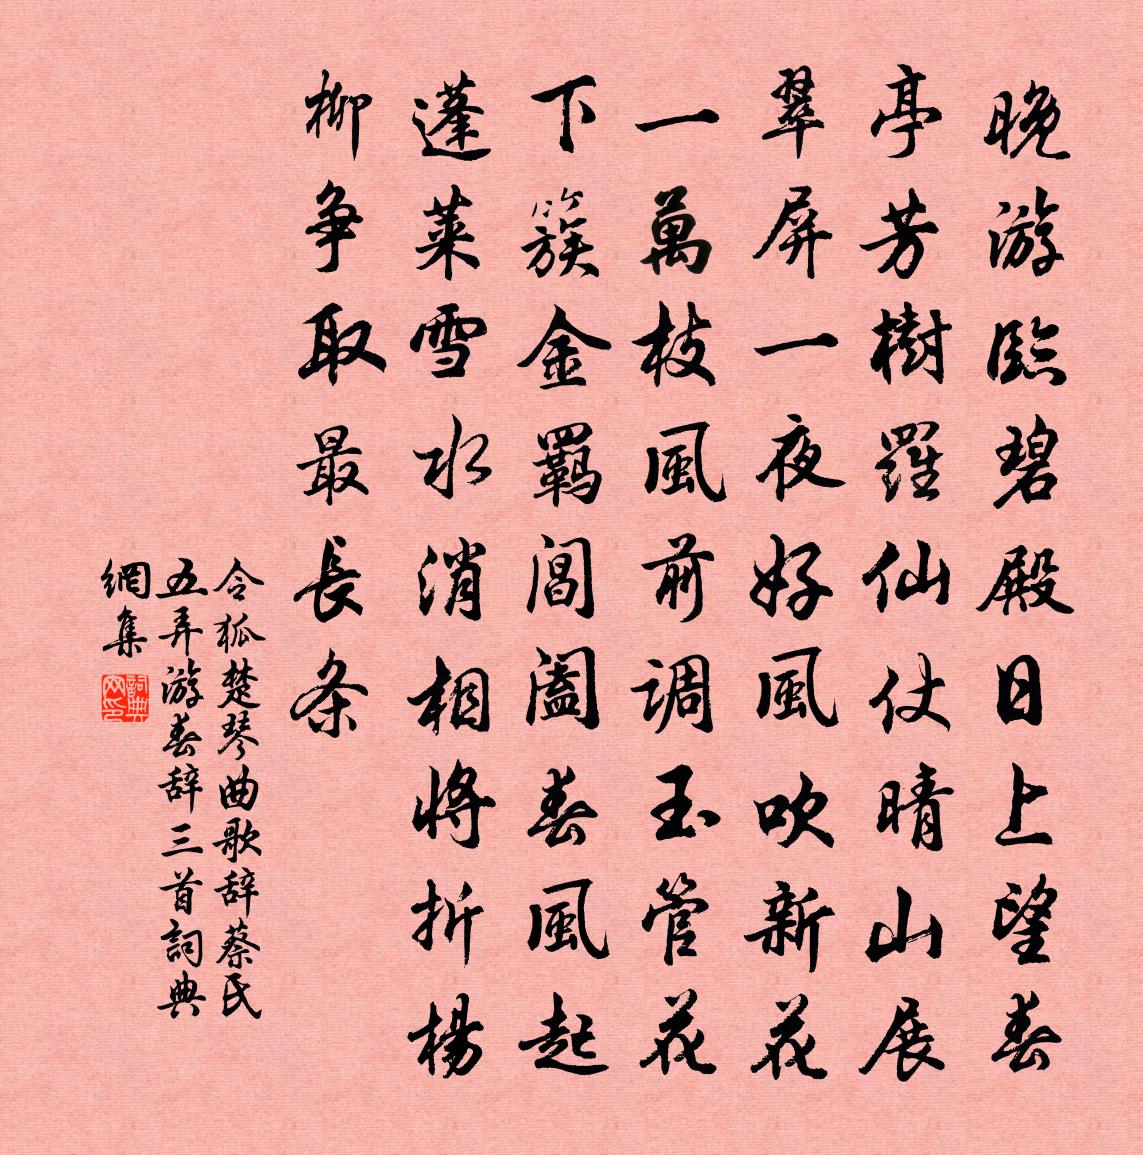 晚游臨碧殿日上望春
亭芳樹羅仙仗晴山展
翠屏一夜好風吹新花
一萬枝風前調玉管花
下簇金羈閶闔春風起
蓬萊雪水消相將折楊
柳争取最長条
令狐楚琴曲歌辞蔡氏
五弄游春辞三首詞典
網集
詞典网印